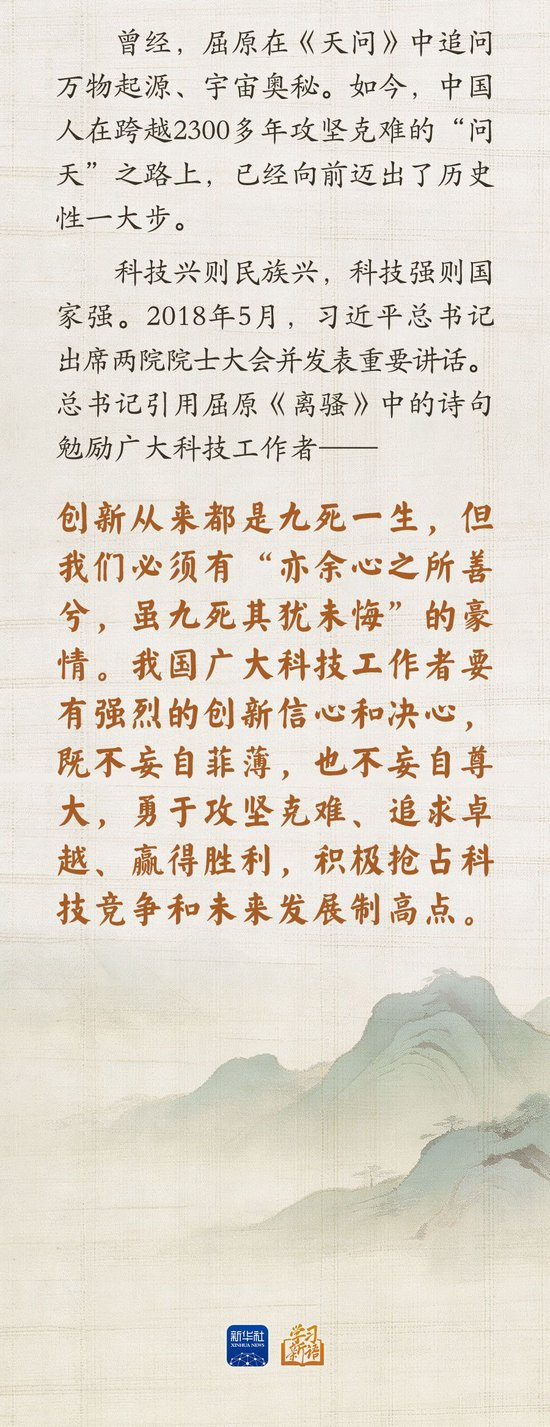 曾经，屈原在《天问》中追问
万物起源、宇宙奥秘。如今，中国
人在跨越2300多年攻坚克难的“问
天”之路上，已经向前迈出了历史
性一大步。
科技兴则民族兴，科技强则国
家强。2018年5月，习近平总书记
出席两院院士大会并发表重要讲话。
总书记引用屈原《离骚》中的诗句
勉励广大科技工作者——
创新从来都是九死一生，但
我们必须有“亦余心之所善
兮，虽九死其犹未悔”的豪
情。我国广大科技工作者要
有强烈的创新信心和决心，
既不妄自菲薄，也不妄自尊
大，勇于攻坚克难、追求卓
越、赢得胜利，积极抢占科
技竞争和未来发展制高点。
新华社
XINHUA NEWS
学习
新语